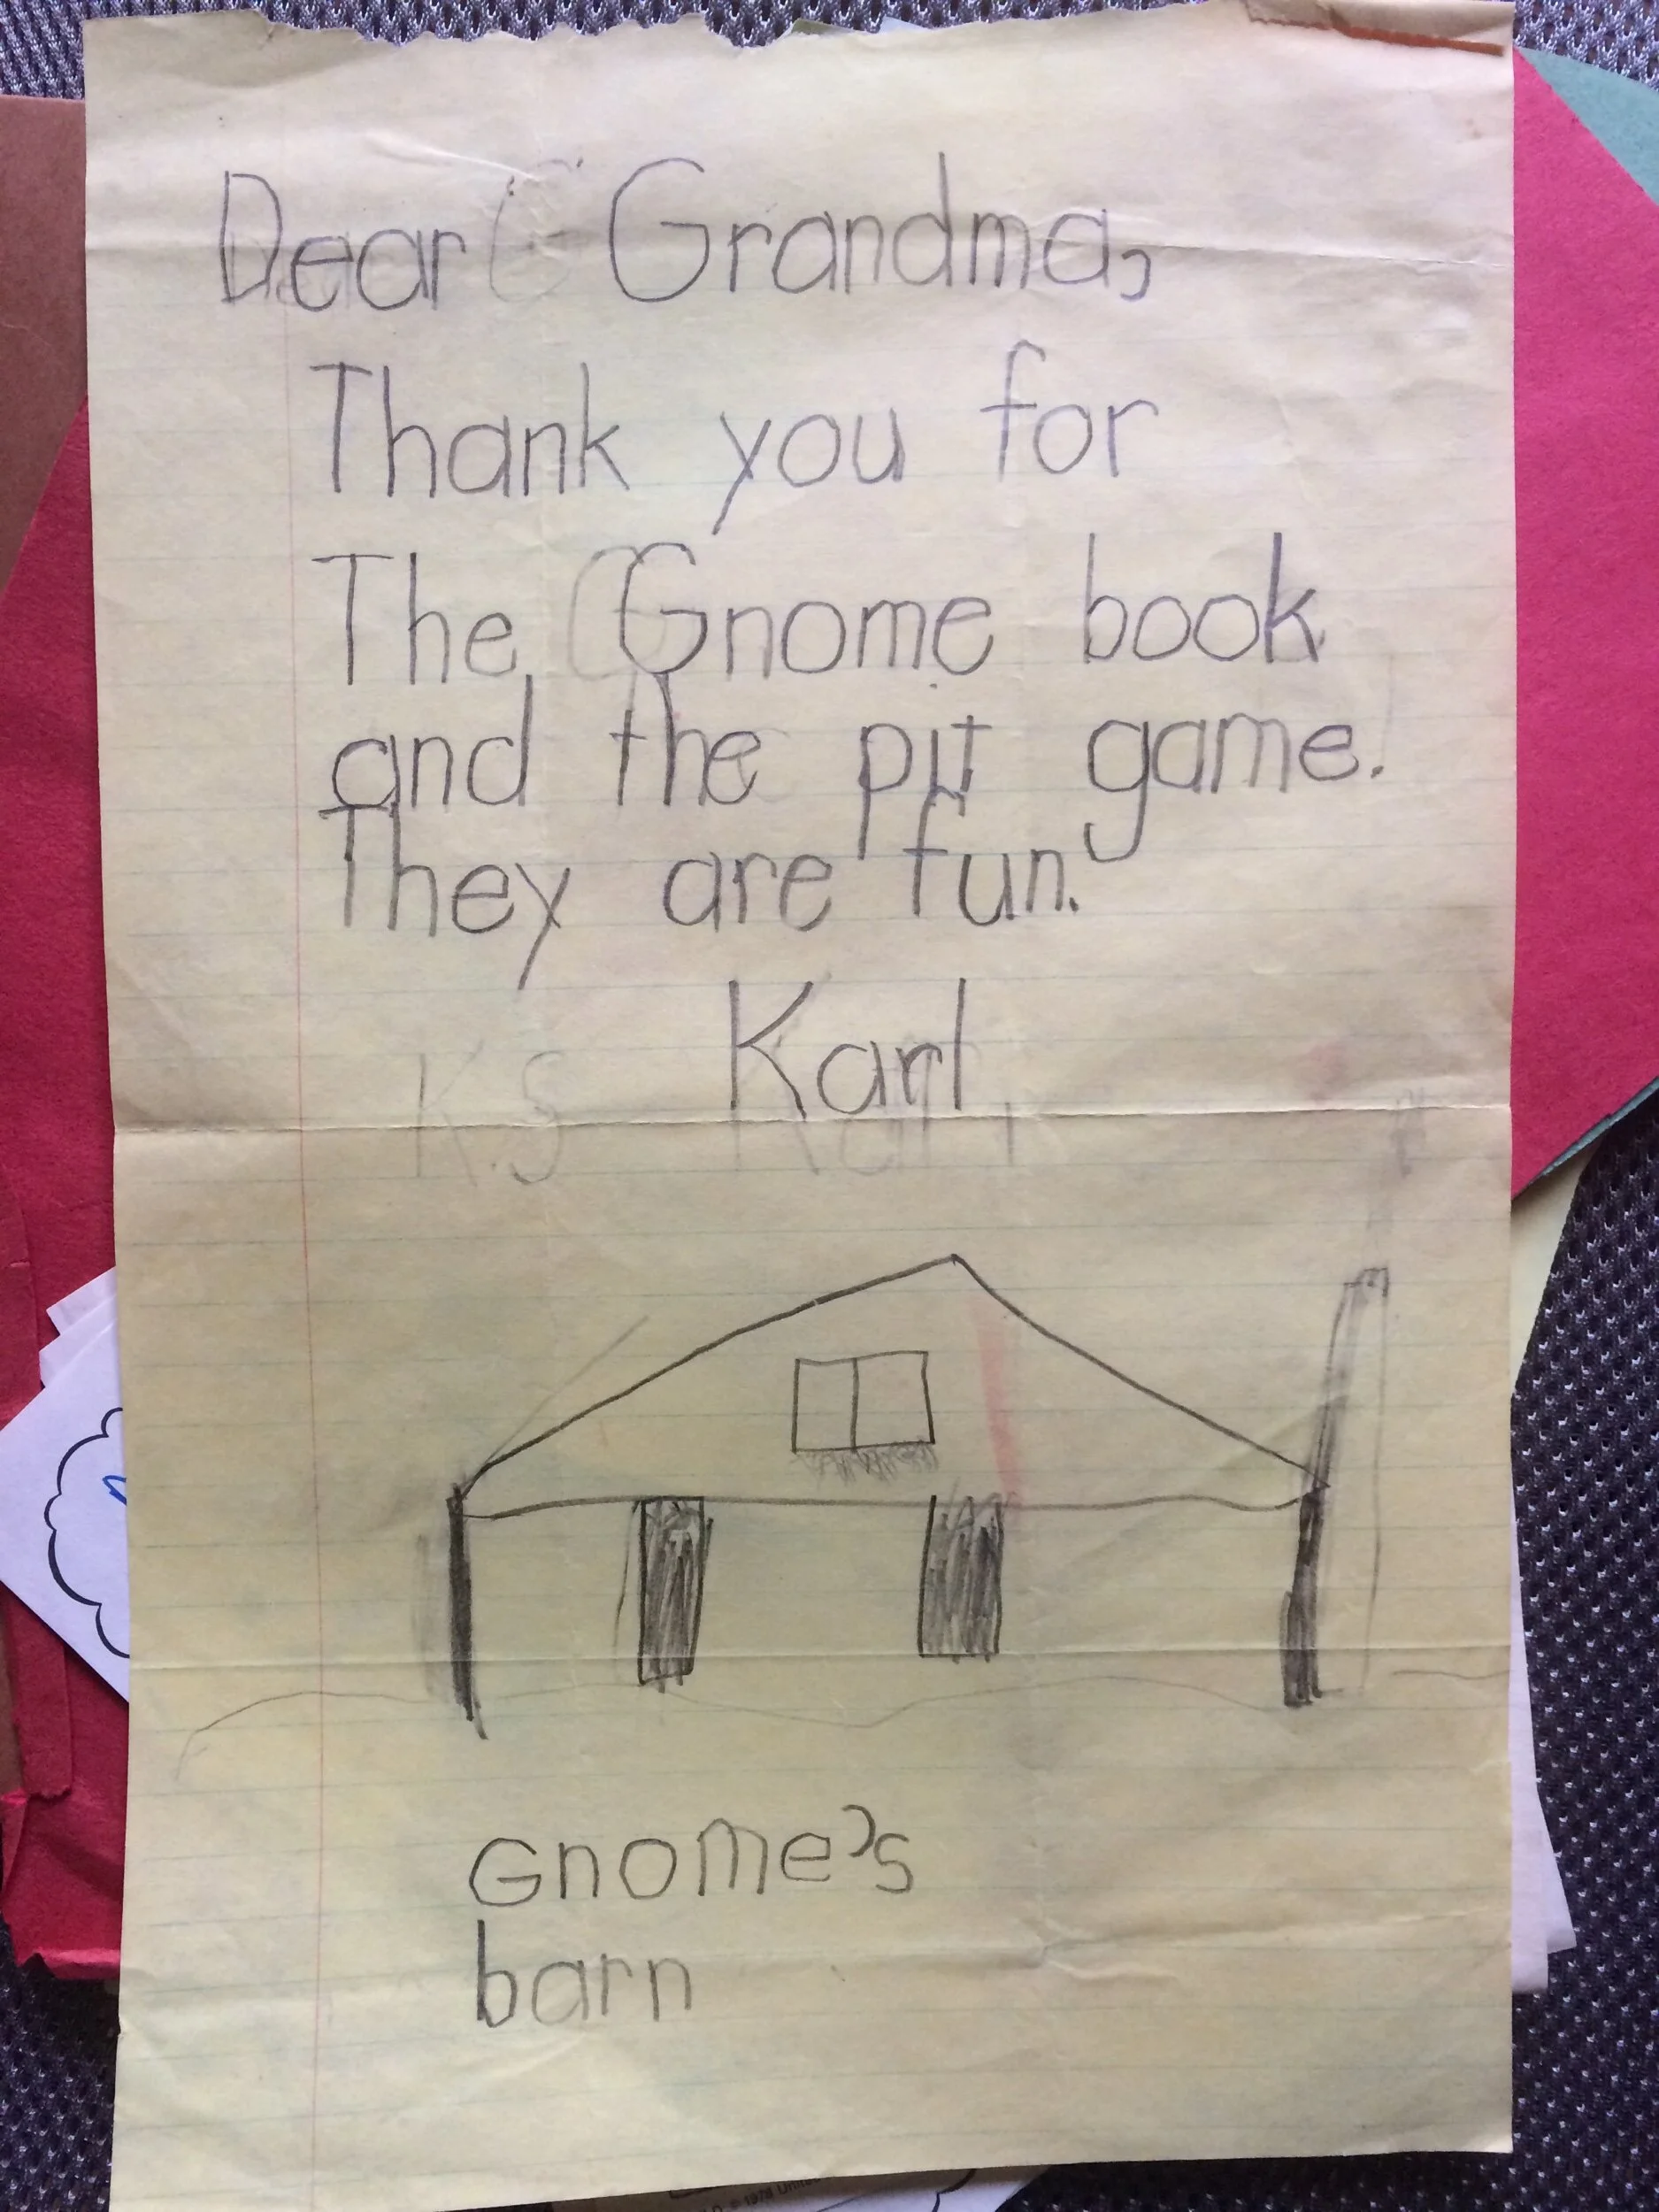 Dear Grandma,
Thank you for
The Gnome book
and the pit game.
They are fun.
Karl
K.S Karl
Gnome's
barn
© 1978 United